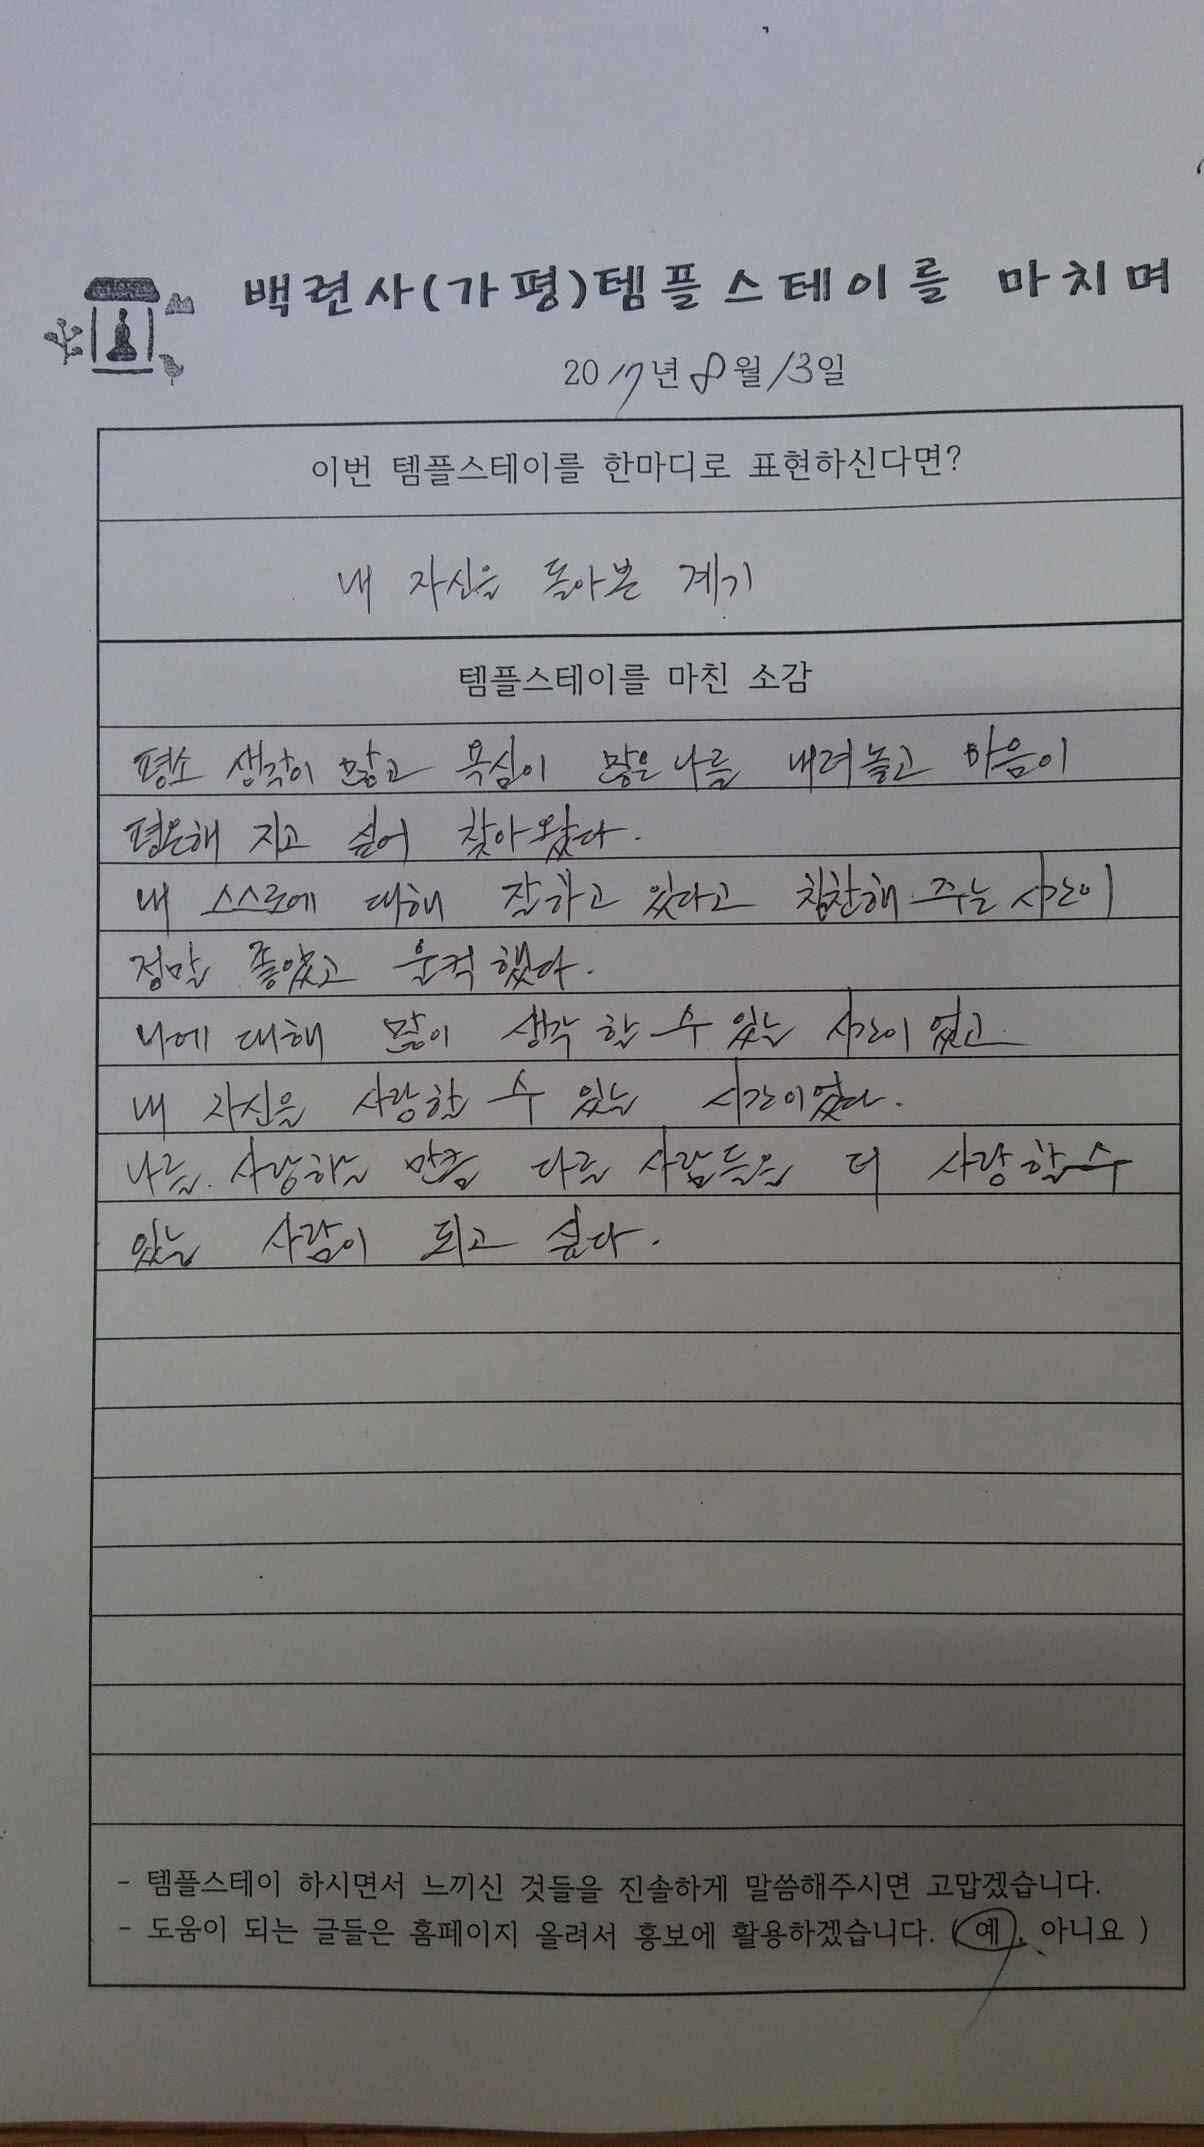 백련사(가평)템플스테이를 마치며
2017년 8월 13일
이번 템플스테이를 한마디로 표현하신다면?
내 자신을 돌아본 계기
템플스테이를 마친 소감
평소 생각이 많고 욕심이 많은 나를 내려놓고 마음이
평온해 지고 싶어 찾아왔다.
내 스스로에 대해 잘하고 있다고 칭찬해 주는 시간이
정말 좋았고 울컥했다.
나에 대해 많이 생각 할 수 있는 시간이었고
내 자신을 사랑할 수 있는 시간이었다.
나를 사랑하는 만큼 다른 사람들을 더 사랑할 수
있는 사람이 되고 싶다.
- 템플스테이 하시면서 느끼신 것들을 진솔하게 말씀해주시면 고맙겠습니다.
- 도움이 되는 글들은 홈페이지 올려서 홍보에 활용하겠습니다. (예, 아니요 )